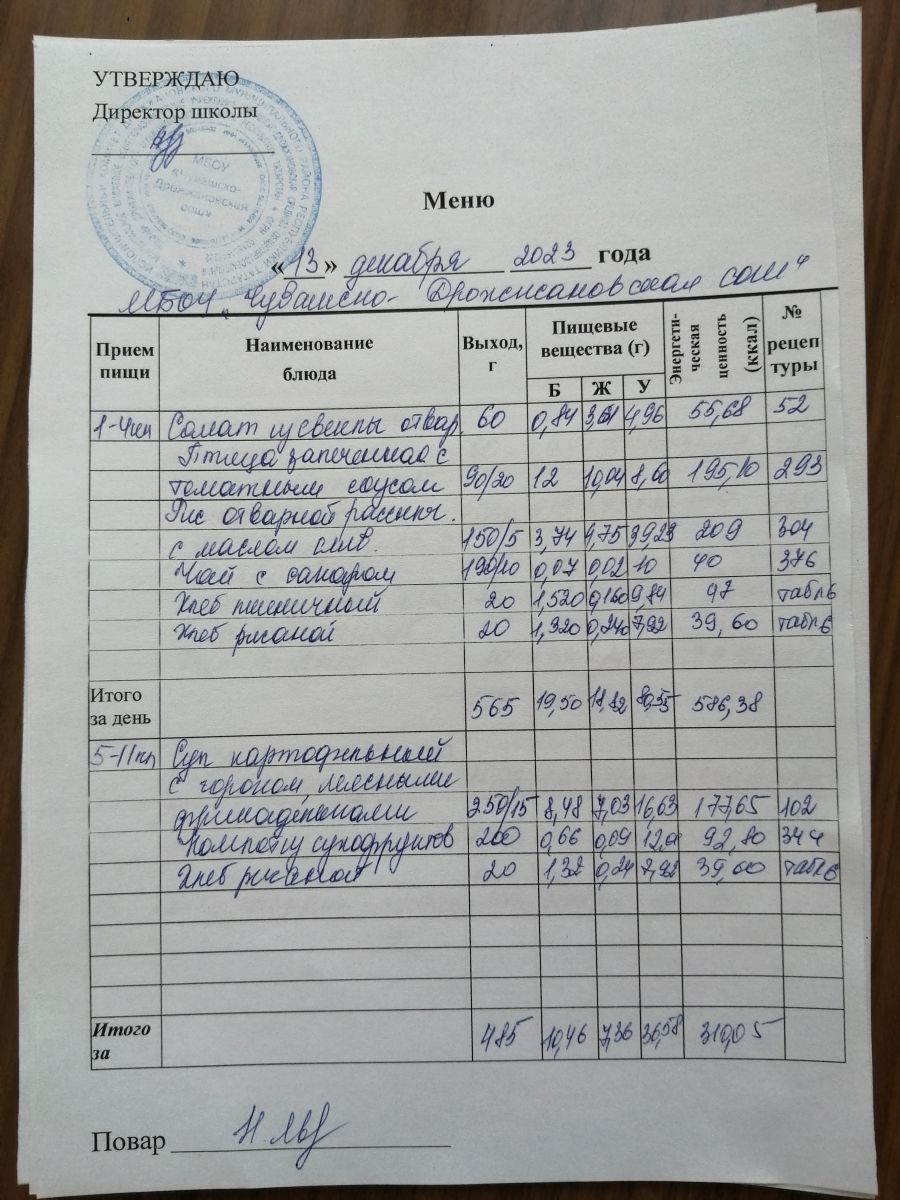 УТВЕРЖДАЮ
Директор школы
МБОУ
«Чувашско-
Дрожжановская
сош»
Меню
«13» декабря 2023 года
МБОУ „Чувашско- Дрожжановская сош“
Прием пищи Наименование блюда Выход, г Пищевые вещества (г) Энергети-ческая ценность (ккал) № рецептуры
Б Ж У
1-4кл Салат из свеклы отвар. 60 0,84 3,61 4,96 55,68 52
Птица запеченная с
томатным соусом 90/20 12 10,04 8,60 195,10 293
Рис отварной рассыпч.
с маслом слив. 150/5 3,74 4,75 39,23 209 304
Чай с сахаром 190/10 0,07 0,02 10 40 376
Хлеб пшеничный 20 1,520 0,160 9,84 47 табл6
Хлеб ржаной 20 1,320 0,240 7,92 39,60 табл6
Итого
за день 565 19,50 18,82 80,55 586,38
5-11кл Суп картофельный
с горохом, мясными
фрикадельками 250/15 8,48 7,03 16,63 177,65 102
Компот из сухофруктов 200 0,66 0,09 92,80 344
Хлеб ржаной 20 1,32 0,24 7,92 39,60 табл6
Итого
за 485 10,46 7,36 36,58 310,05
Повар